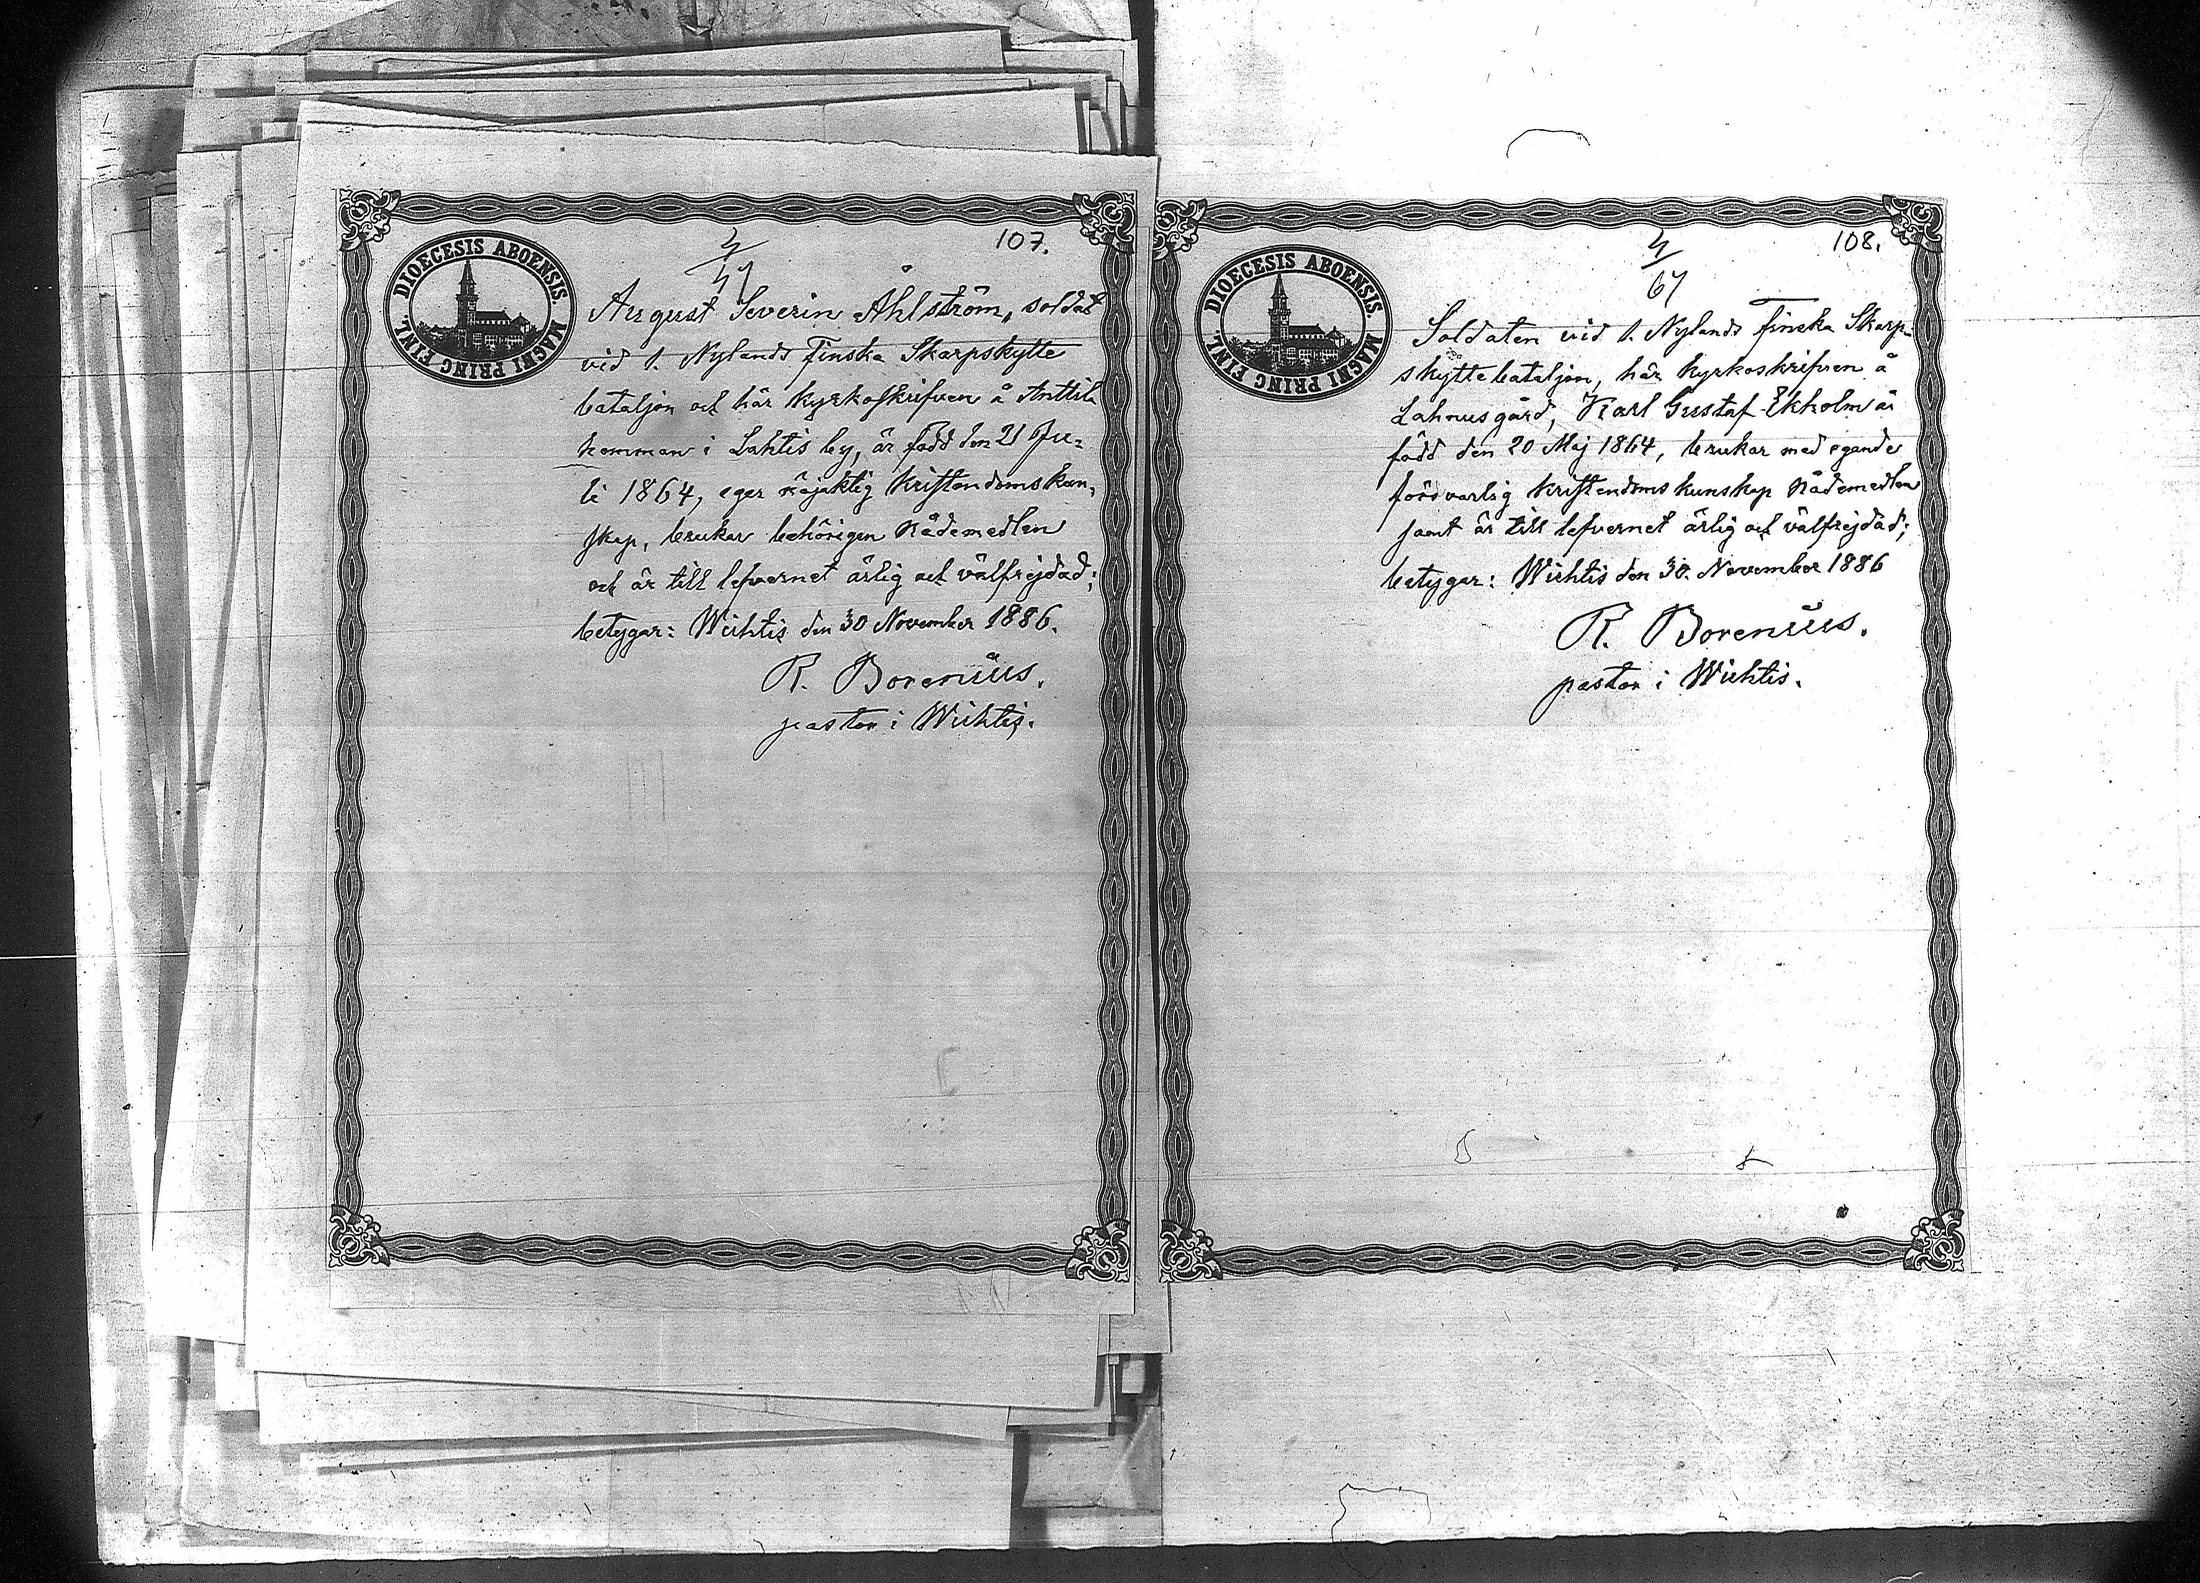 107.
4/47
DIOECESIS ABOENSIS. MAGNI PRINC FINL.
August Severin Åhlström, soldat
vid 1. Nylands Finska Skarpskytte
bataljon och här kyrkoskrifven å Anttila
hemman i Lahtis by, är född den 21 Ju-
li 1864, eger nöjaktig kristendomskun-
skap, brukar behörigen nådemedlen
och är till lefvernet ärlig och välfrejdad;
betygar: Wichtis den 30 November 1886.
R. Borenius.
pastor i Wichtis.
108.
4/67
DIOECESIS ABOENSIS. MAGNI PRINC FINL.
Soldaten vid 1. Nylands Finska Skarp-
skyttebataljon, här kyrkoskrifven å
Lahnusgård, Karl Gustaf Ekholm är
född den 20 Maj 1864, brukar med egande
försvarlig kristendomskunskap nådemedlen
samt är till lefvernet ärlig och välfrejdad;
betygar: Wichtis den 30. November 1886
R. Borenius.
pastor i Wichtis.